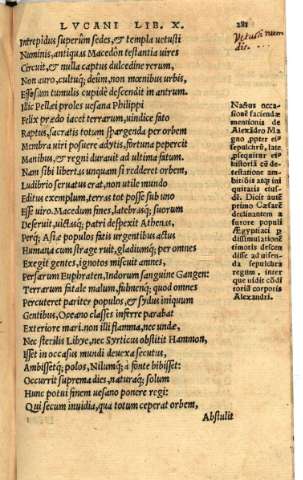 LVCANI LIB. X.
281
Intrepidus superûm sedes, & templa uetusti
Numinis, antiquas Macedôn testantia uires
Circuit, & nulla captus dulcedine rerum,
Non auro, cultuq; deûm, non mœnibus urbis,
Effossum tumulis cupidè descendit in antrum.
Illic Pellæi proles uesana Philippi
Felix prædo iacet terrarum, uindice fato
Raptus, sacratis totum spargenda per orbem
Membra uiri posuere adytis, fortuna pepercit
Manibus, & regni durauit ad ultima fatum.
Nam sibi libertas unquam si redderet orbem,
Ludibrio seruatus erat, non utile mundo
Editus exemplum, terras tot posse sub uno
Esse uiro. Macedum fines, latebrasq; suorum
Deseruit, uictasq; patri despexit Athenas,
Perq; Asiæ populos fatis urgentibus actus
Humana cum strage ruit, gladiumq; per omnes
Exegit gentes, ignotos miscuit amnes,
Persarum Euphraten, Indorum sanguine Gangen:
Terrarum fatale malum, fulmenq; quod omnes
Percuteret pariter populos, & sydus iniquum
Gentibus, Oceano classes inferre parabat
Exteriore mari. non illi flamma, nec undæ,
Nec sterilis Libye, nec Syrticus obstitit Hammon,
Isset in occasus mundi deuexa secutus,
Ambissetq; polos, Nilumq; à fonte bibisset:
Occurrit suprema dies, naturaq; solum
Hunc potuit finem uesano ponere regi:
Qui secum inuidia, qua totum ceperat orbem,
Abstulit
Vetusti numi
dis.
Nactus occa-
sionē faciendæ
mentionis de
Alexādro Ma
gno, pter ei
sepulchrū, late
psequitur ei
historiā cū de
testatione am-
bitiōis atq; ini
quitatis eiusdē.
Dicit autē
primo Cæsarē
declinantem a
furore populi
Aegyptiaci p
dissimulationē
timoris descen
disse ad uisen-
da sepulchra
regum, inter
quæ uidit cōdi
toriū corporis
Alexandri.